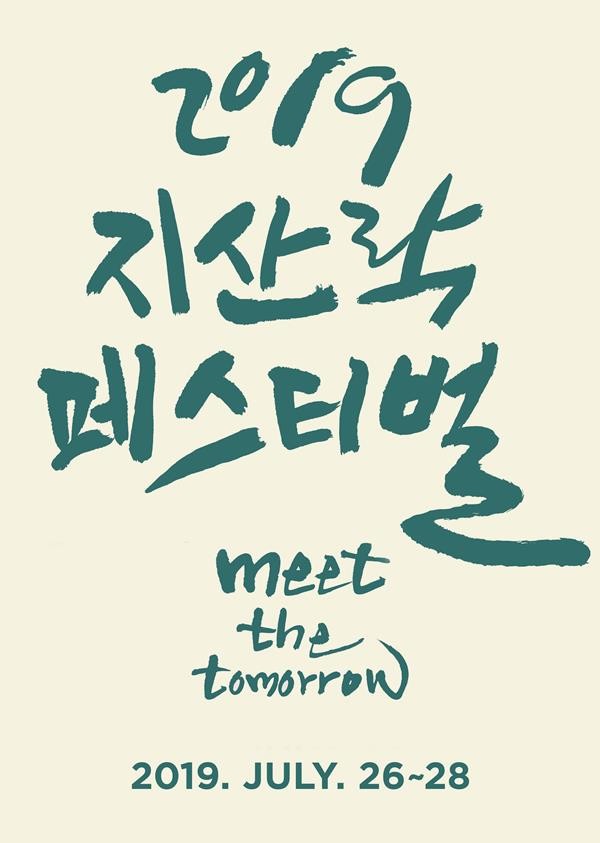 2019
지산락
페스티벌
meet
the
tomorrow
2019. JULY. 26~28